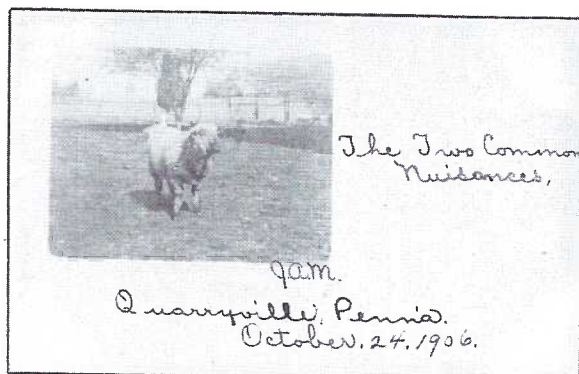 The Two Common
Nuisances,
J.A.M.
Quarryville, Penn'a.
October. 24. 1906.